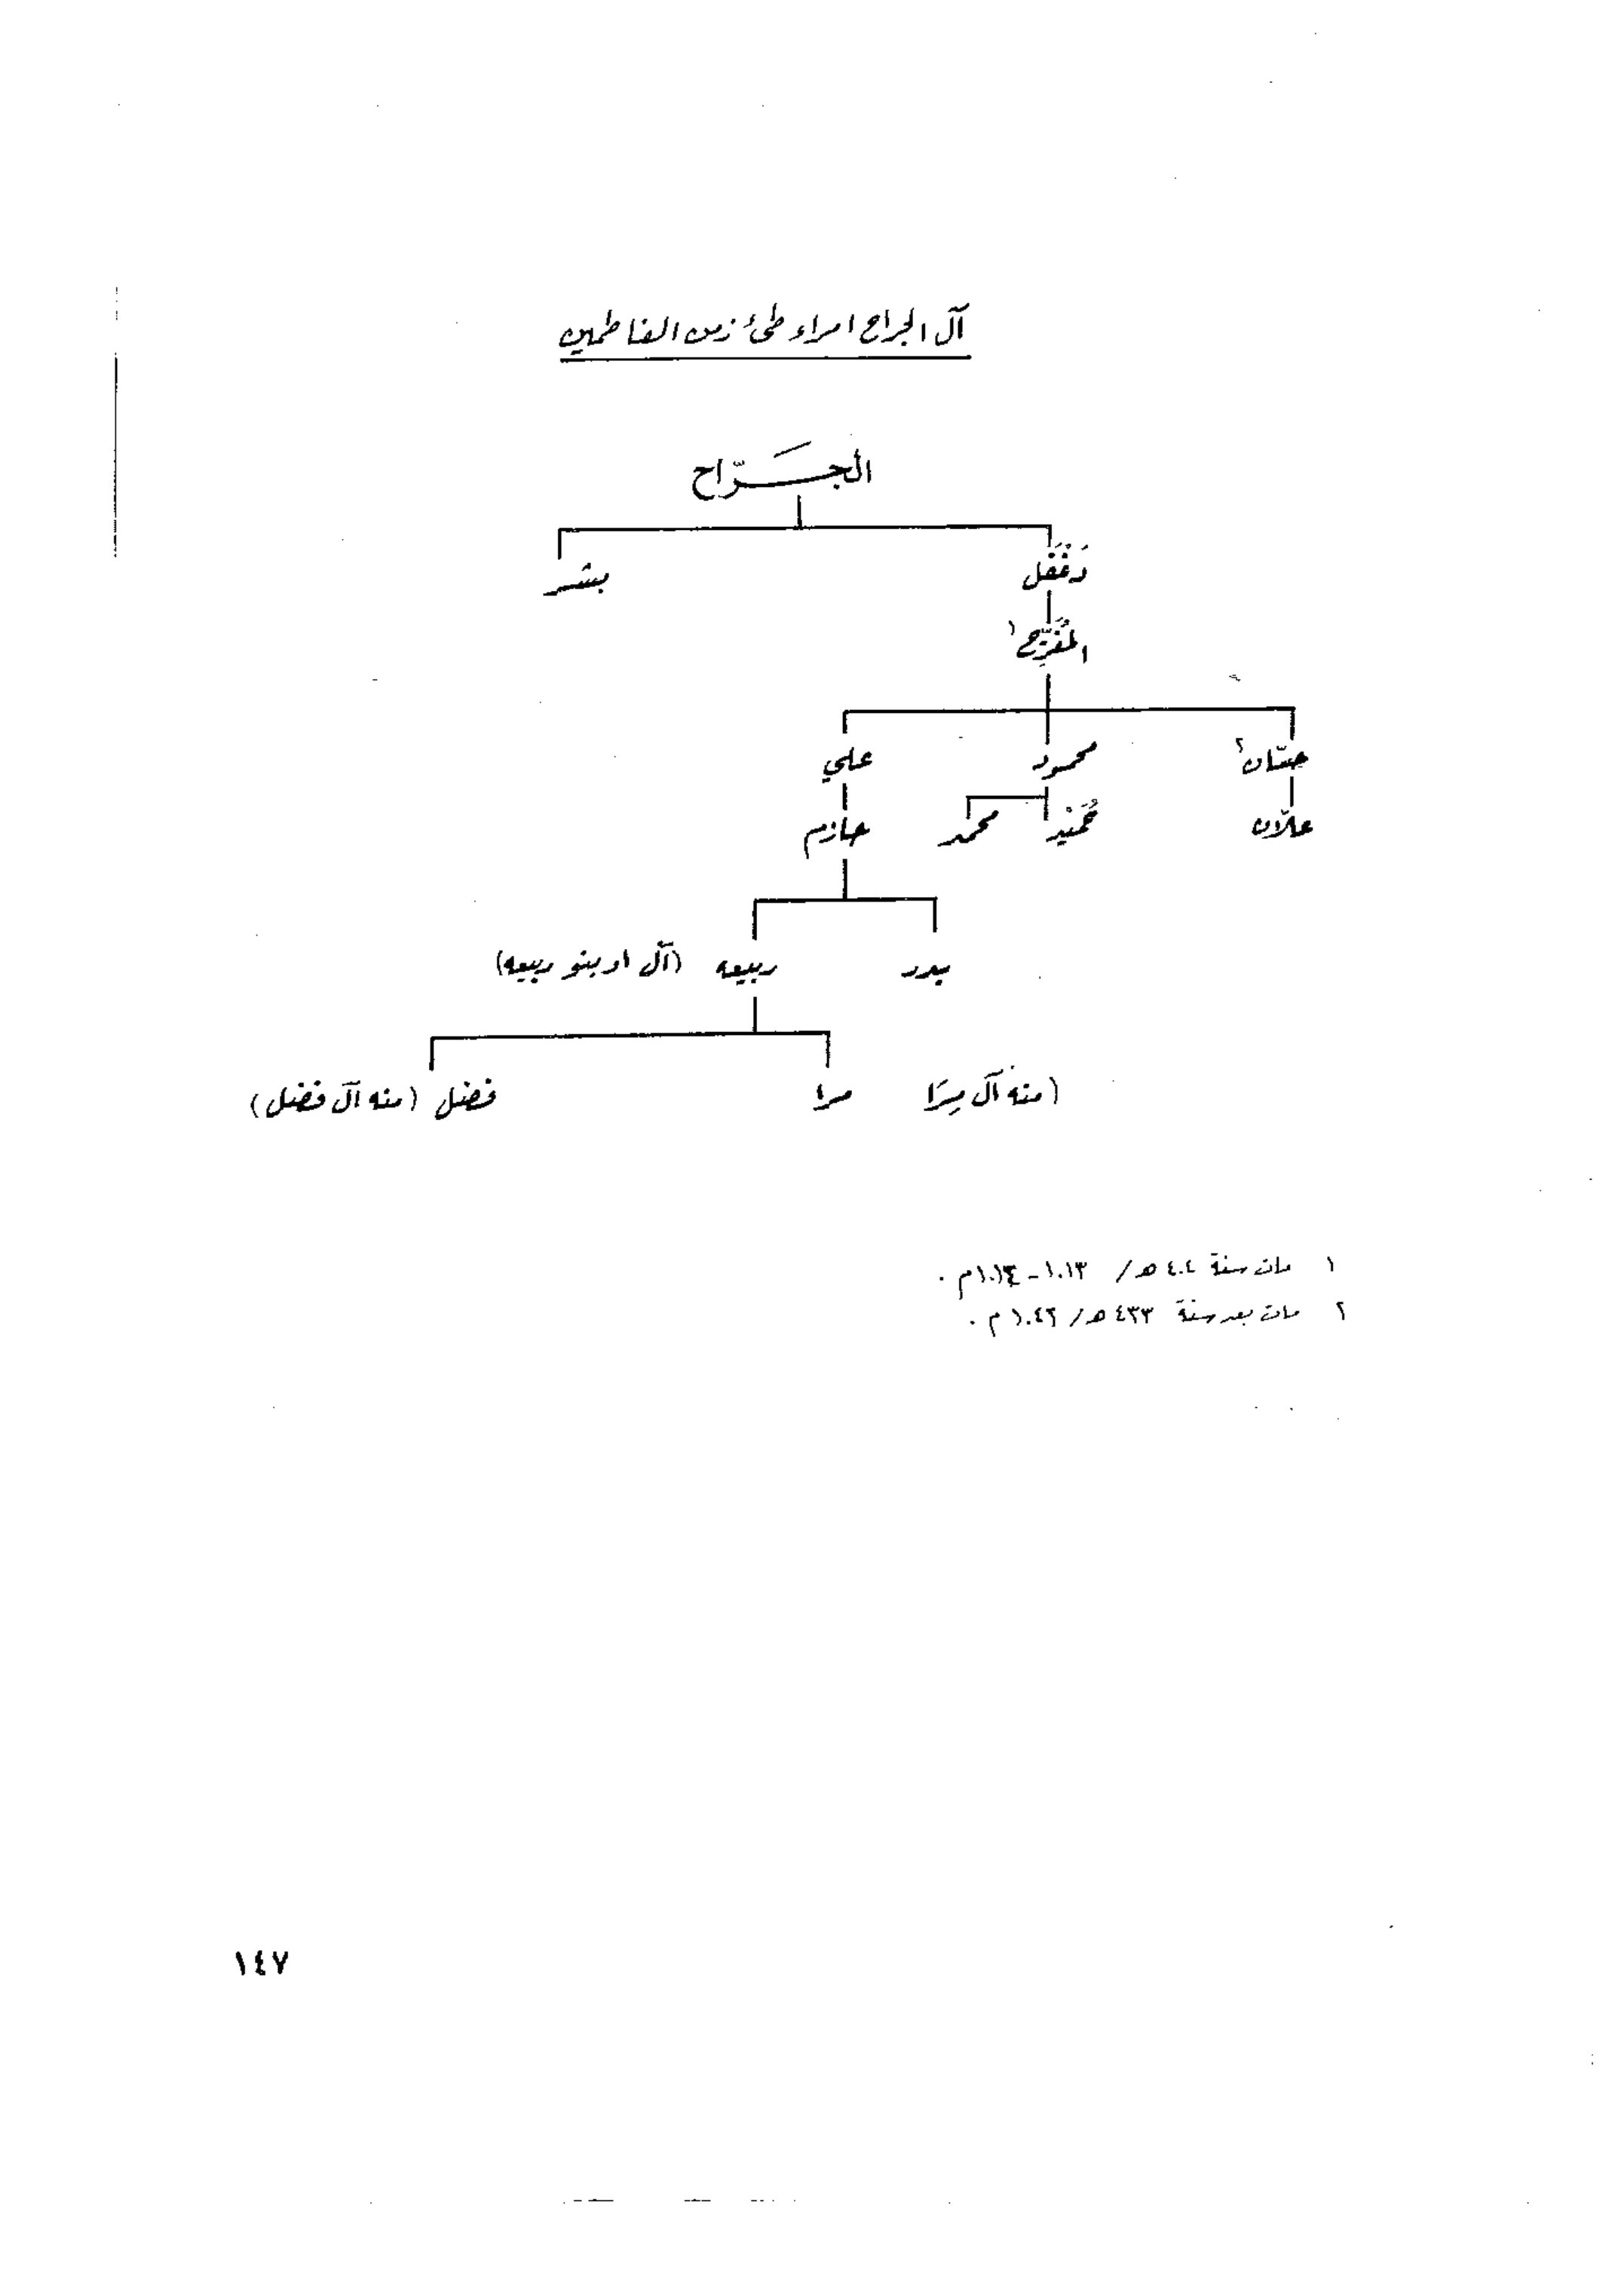 آل الجراح امراء طيء زمن الفاطميين
الجَرّاح
دَغْفَل بشر
المُفَرِّج١
حسّان٢ محمود علي
علّان حُمَيْد محمد حازم
بدر ربيعه (آل او بنو ربيعه)
(منه آل مِرَا مرا فضل (منه آل فضل)
١ مات سنة ٤٠٤ هـ/ ١٠١٣ـ١٠١٤م .
٢ مات بعد سنة ٤٣٣ هـ/ ١٠٤٢ م .
١٤٧